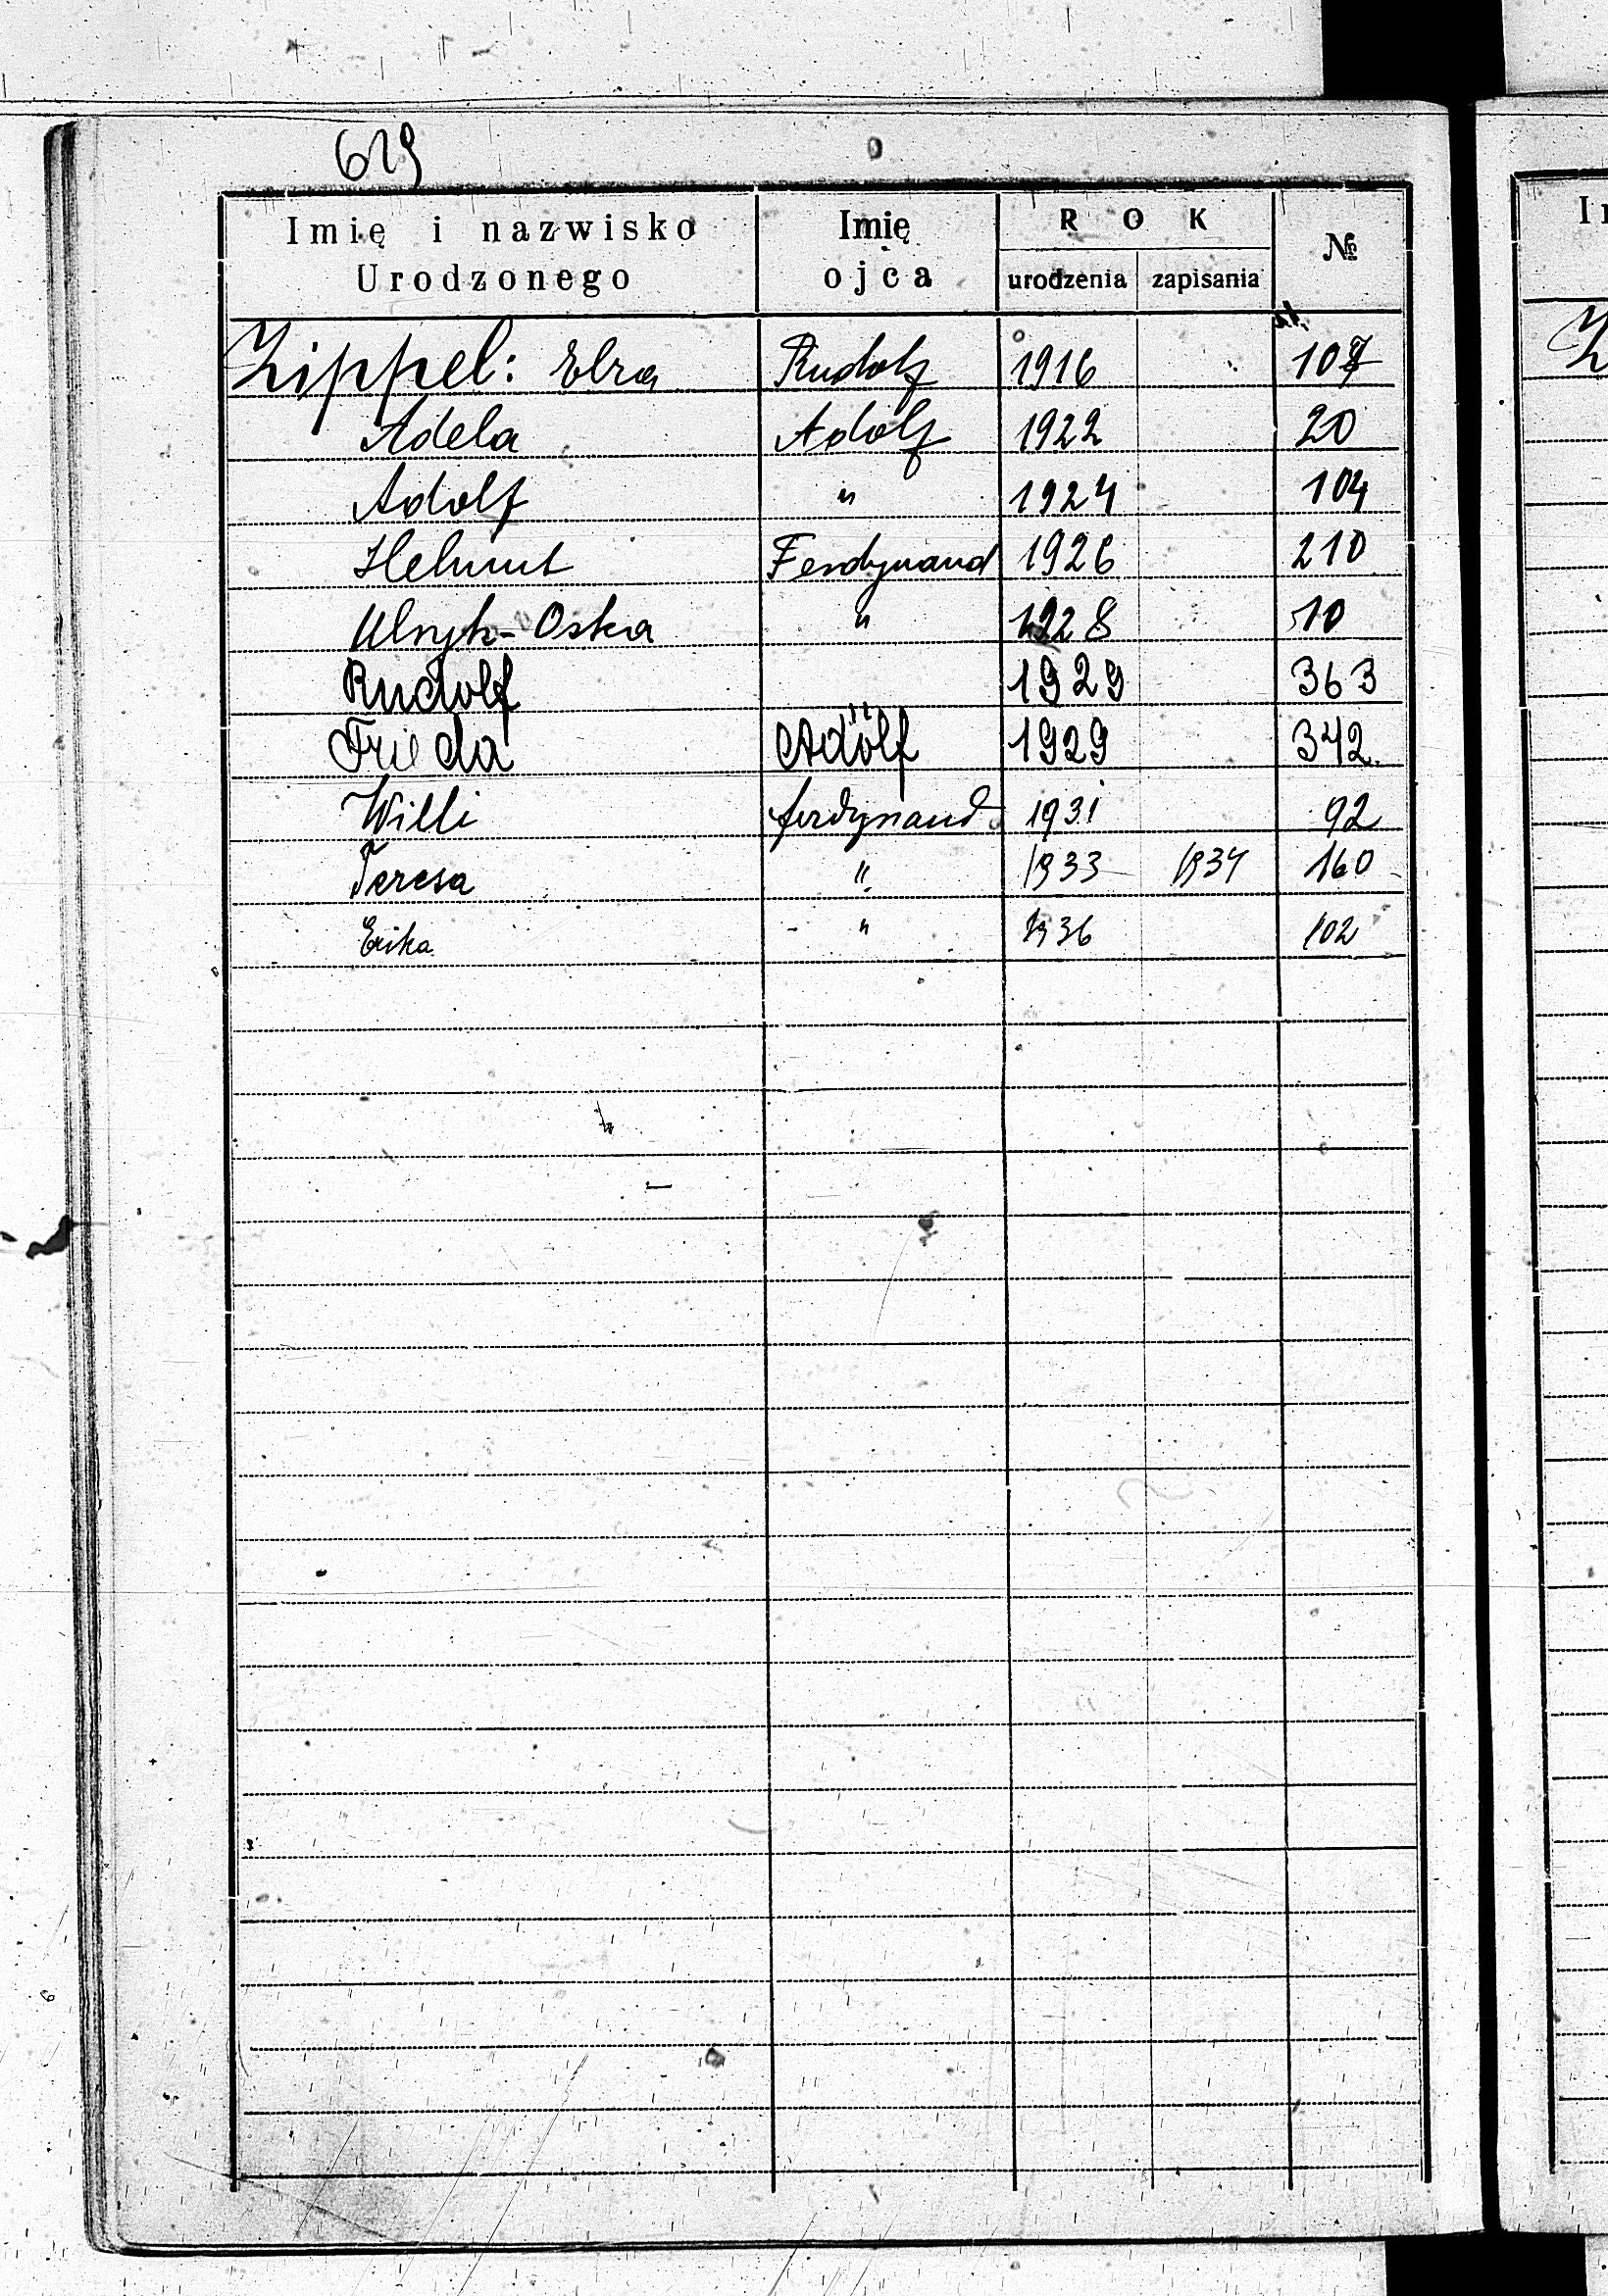 629
Imię i nazwisko Urodzonego Imię ojca ROK urodzenia zapisania №
Zippel: Elza Rudolf 1916 107
Adela Adolf 1922 20
Adolf " 1924 104
Helmut Ferdynand 1926 210
Ulryk-Oska " 1928 10
Rudolf 1929 363
Frieda Adolf 1929 342.
Willi ferdynand 1931 92
Teresa " 1933 1934 160
Erika " 1936 102